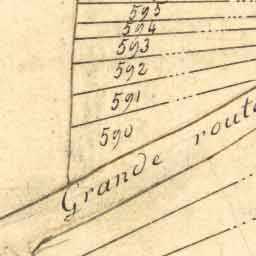 595
594
593
592
591
590
Grande route